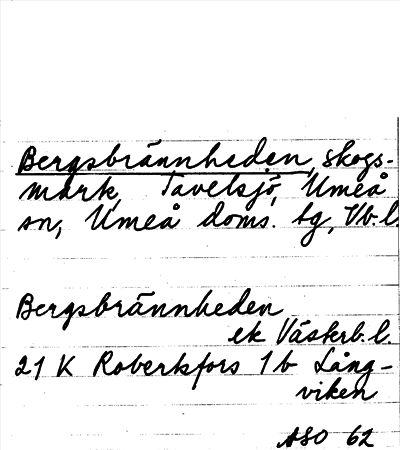 Bergsbrännheden, skogs-
mark, Tavelsjö, Umeå
sn, Umeå doms. tg, Vb.l.
Bergsbrännheden
ek Västerb.l.
21 K Robertsfors 1b Lång-
viken
ASO 62